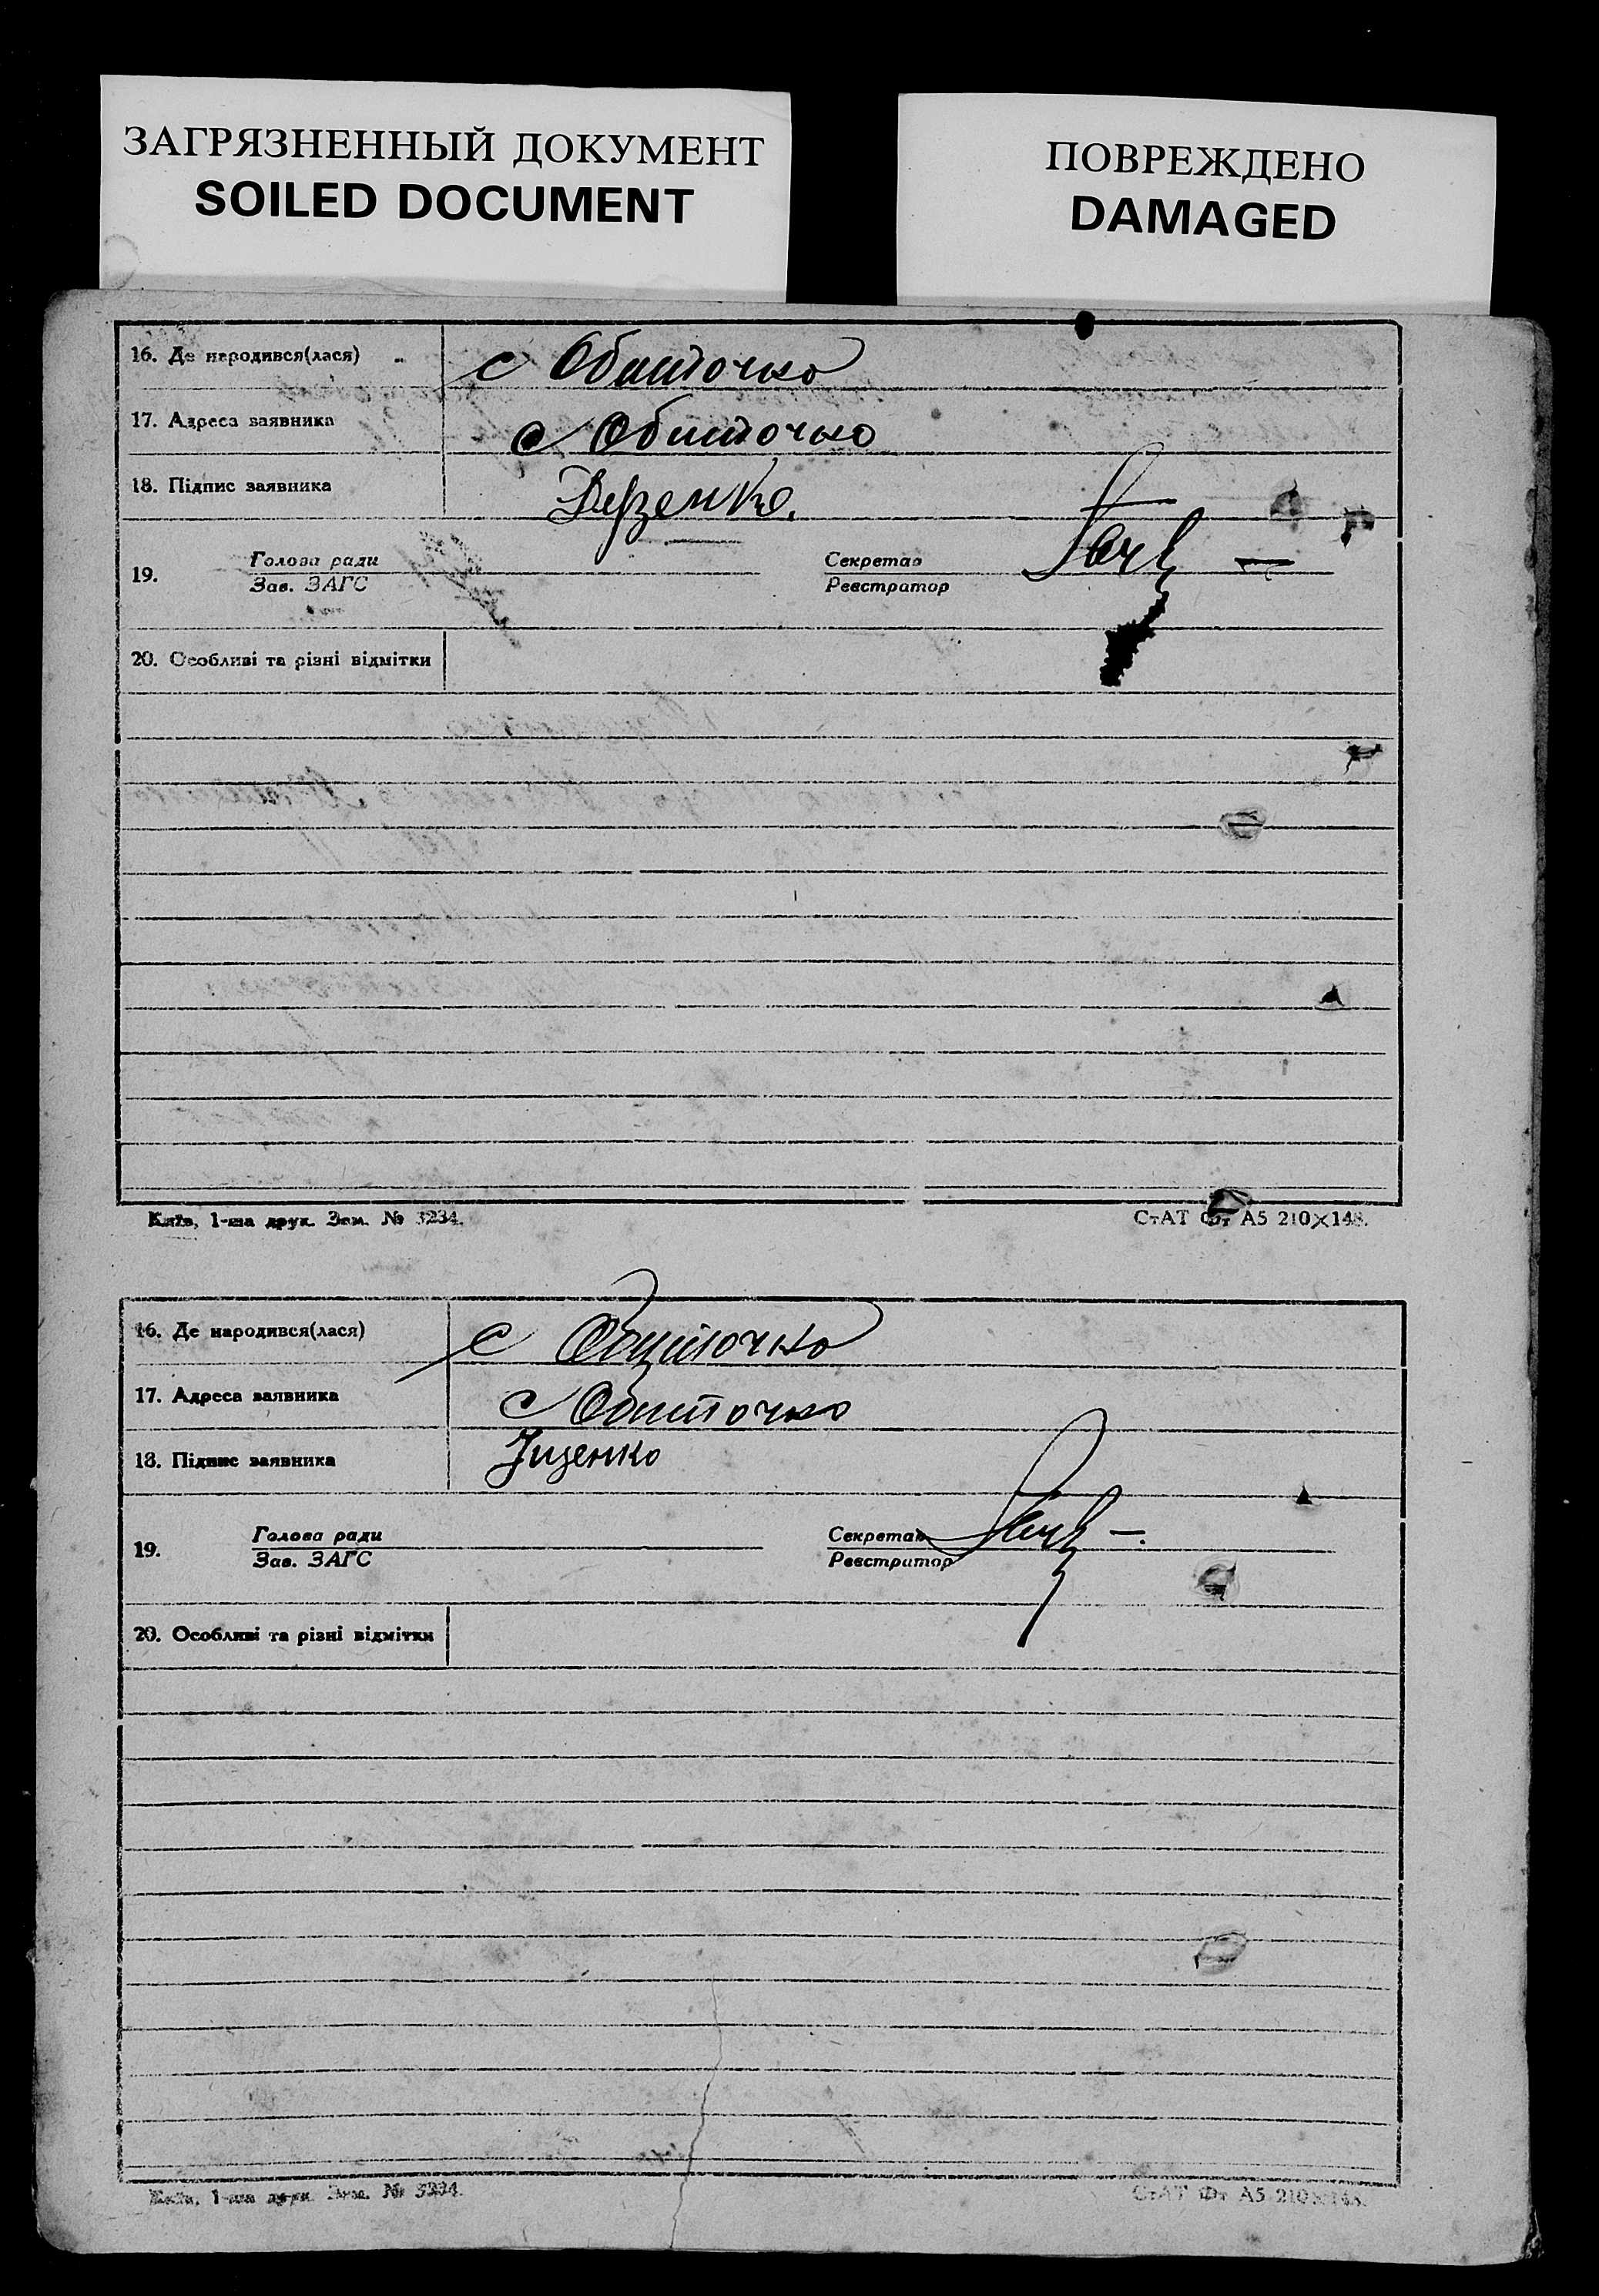 ЗАГРЯЗНЕННЫЙ ДОКУМЕНТ
SOILED DOCUMENT
ПОВРЕЖДЕНО
DAMAGED
16. Де народився(лася) с Обиточно
17. Адреса заявника с Обиточно
18. Підпис заявника
19. Голова ради Секретар
Зав. ЗАГС Реєстратор
20. Особливі та різні відмітки
Київ, 1-ша друк. Зам. № 3234. СтАТ Фт А5 210×148.
16. Де народився(лася) с Обиточно
17. Адреса заявника с Обиточно
18. Підпис заявника Іщенко
19. Голова ради Секретар
Зав. ЗАГС Реєстратор
20. Особливі та різні відмітки
Київ, 1-ша друк. Зам. № 3234. СтАТ Фт А5 210×148.